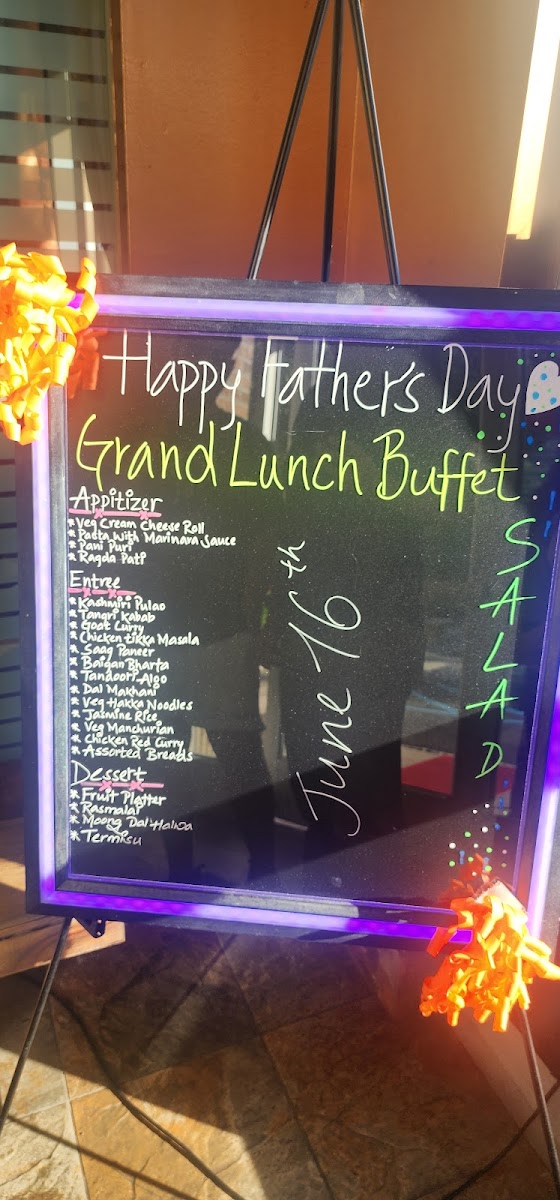 Happy Father's Day
Grand Lunch Buffet
Appitizer
* Veg Cream Cheese Roll
* Pasta With Marinara Sauce
* Pani Puri
* Ragda Pati
Entree
* Kashmiri Pulao
* Tangri Kabab
* Goat Curry
* Chicken tikka Masala
* Saag Paneer
* Baigan Bharta
* Tandoori Aloo
* Dal Makhani
* Veg Hakka Noodles
* Jasmine Rice
* Veg Manchurian
* Chicken Red Curry
* Assorted Breads
Dessert
* Fruit Platter
* Rasmalai
* Moong Dal Halwa
* Termisu
June 16th
SALAD